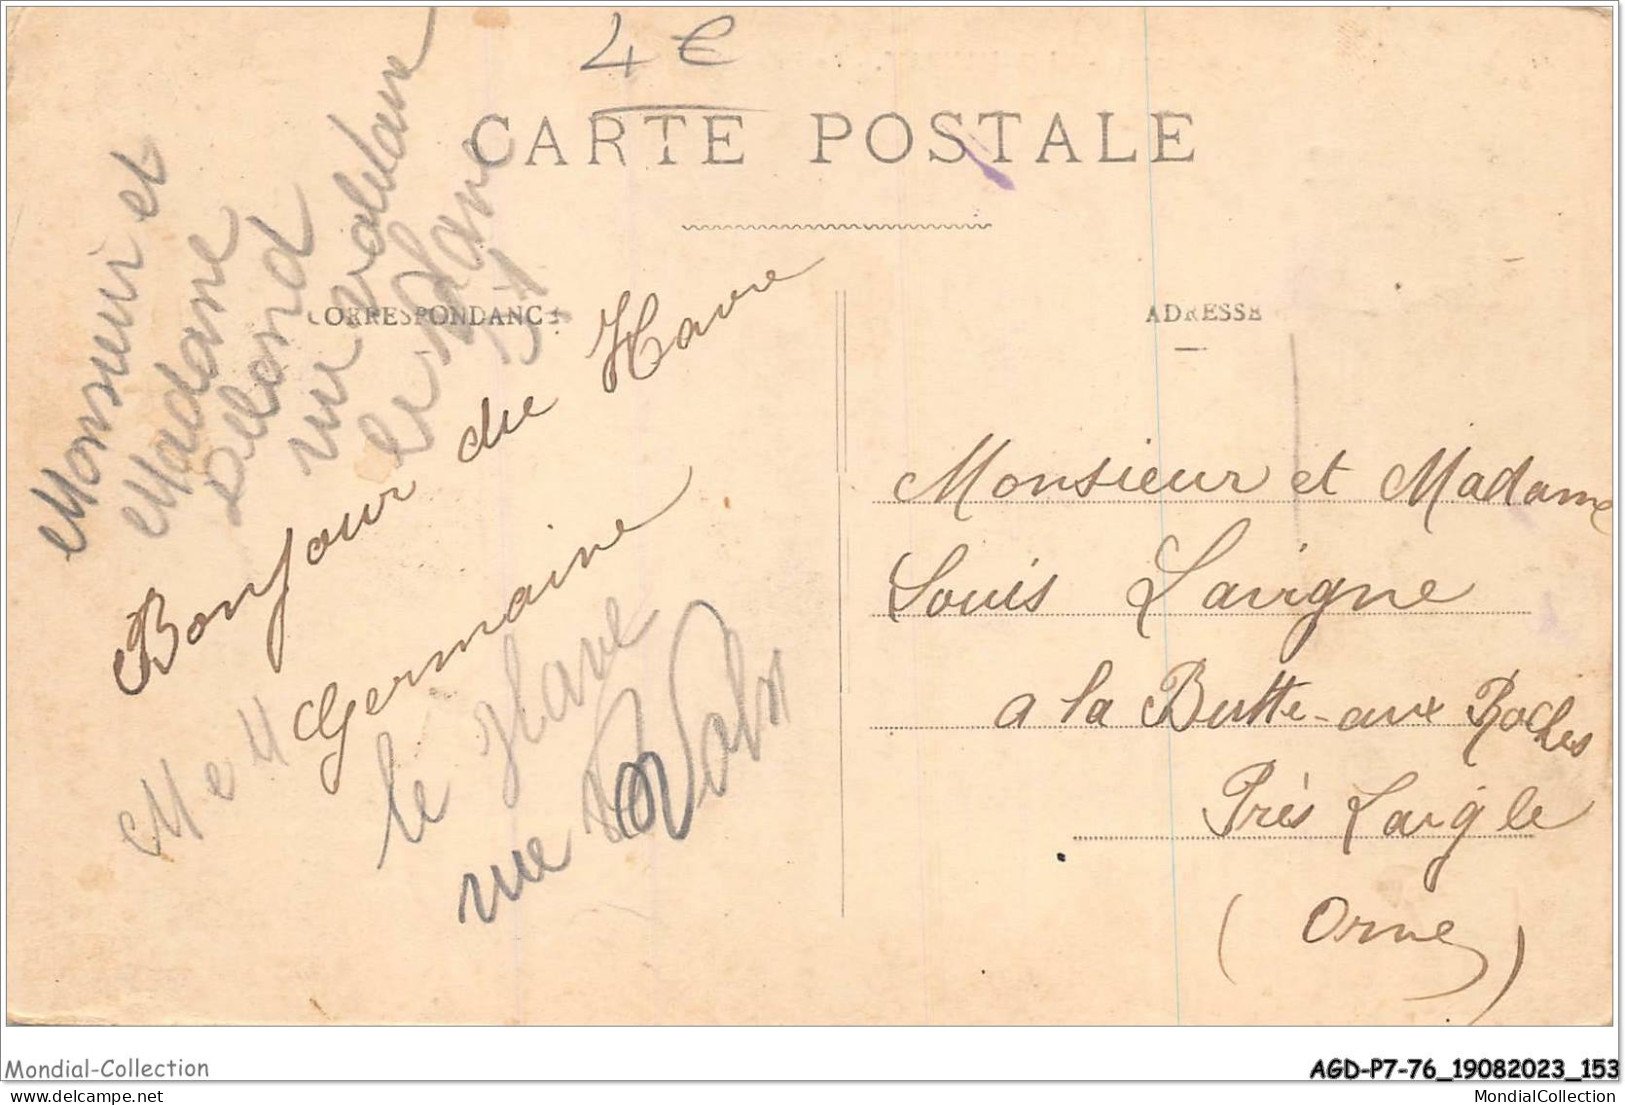 4 €
CARTE POSTALE
CORRESPONDANCE
ADRESSE
Monsieur et
Madame
rue
le Havre
Bonjour du Havre
Germaine
M e M
le Havre
rue
Monsieur et Madame
Louis Lavigne
a la Butte-aux Roches
Près Laigle
(Orne)
Mondial-Collection
AGD-P7-76_19082023_153
MondialCollection